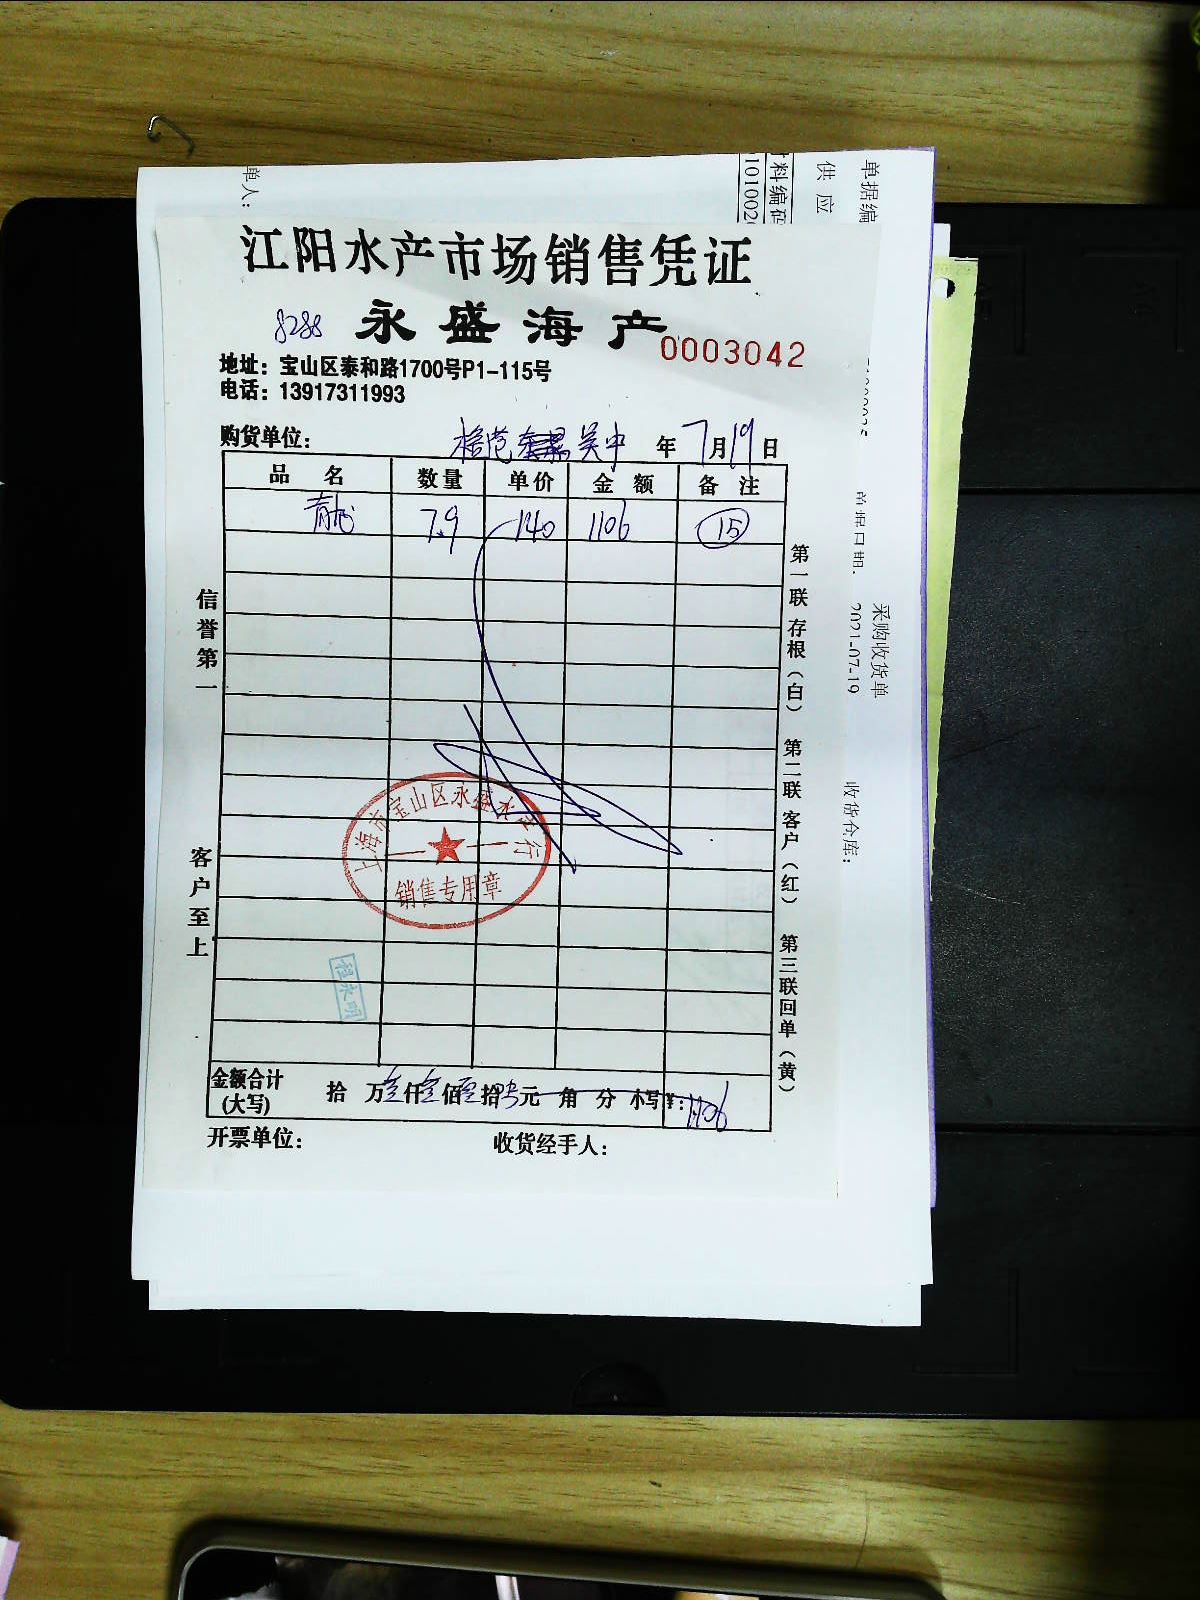 单人：
料编码
101002
供应
单据编
江阳水产市场销售凭证
8288 永盛海产 0003042
地址：宝山区泰和路1700号P1-115号
电话：13917311993
购货单位： 吴中 年 7月19日
品名 数量 单价 金额 备注
青龙 7.9 140 1106 15
信誉第一
客户至上
第一联存根（白）
第二联客户（红）
第三联回单（黄）
上海市宝山区永盛水产行
销售专用章
程永明
金额合计（大写） 拾 万壹仟壹佰零拾 元 角 分 小写¥：1106
开票单位： 收货经手人：
采购收货单
单据日期： 2021-07-19
收货仓库：